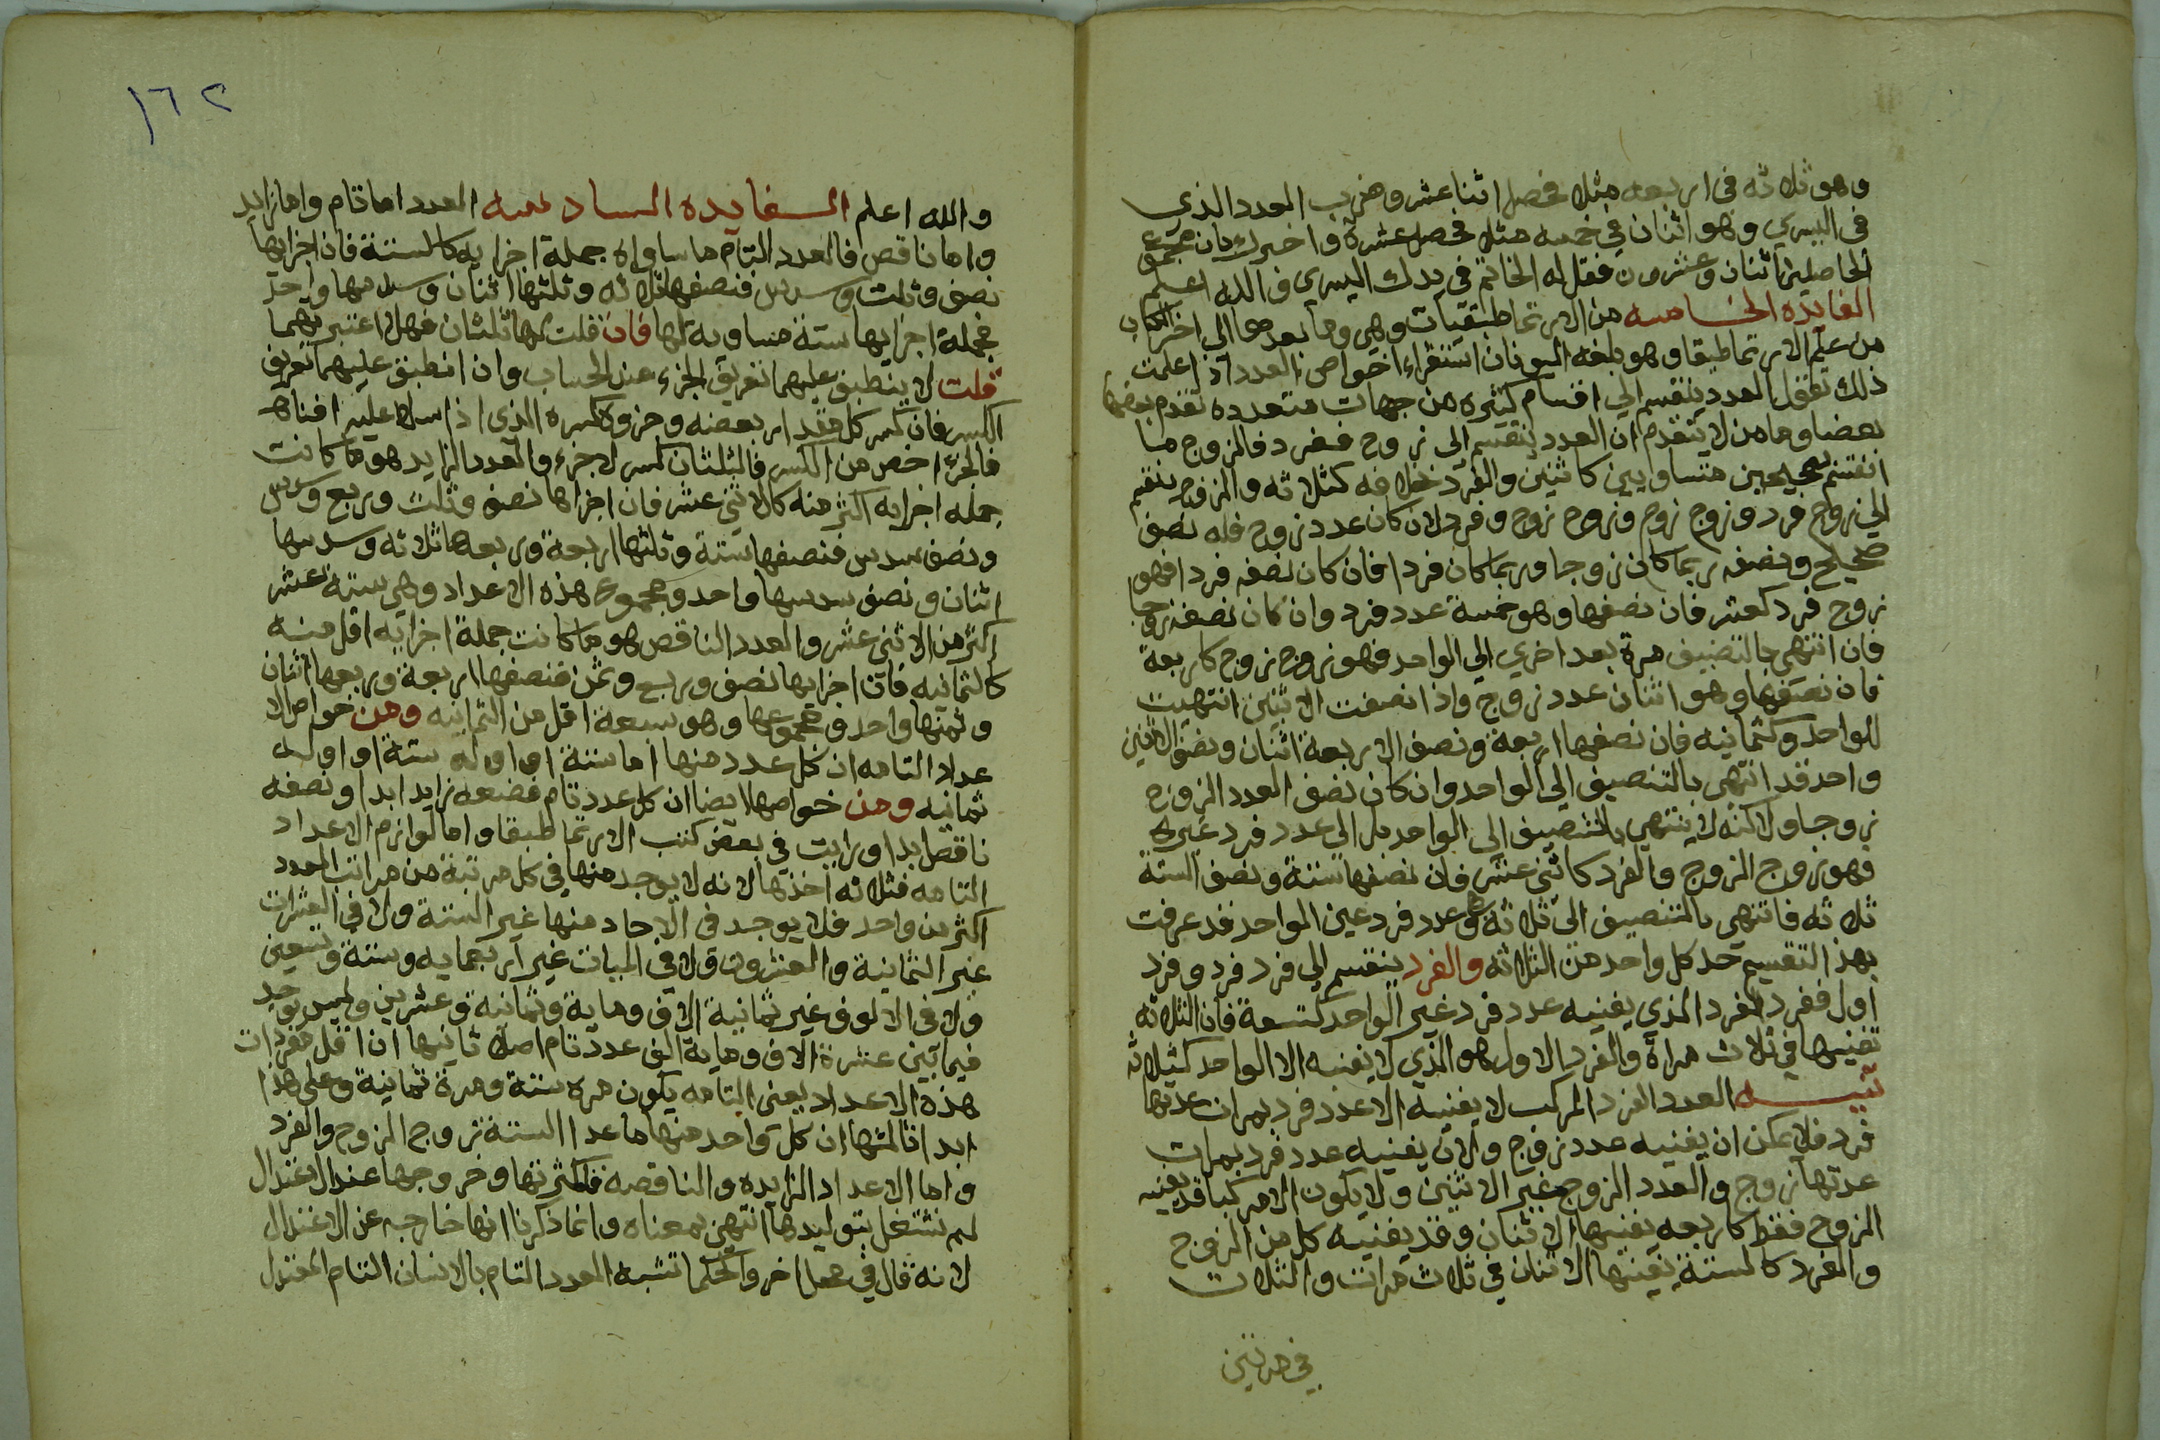 وهو ثلاثه في اربعه مثلا فحصل اثنا عشر وضرب العدد الذي
في اليسري وهو اثنان في خمسه مثلا فحصل عشرة واخبرك بان مجموع
الحاصلين اثنان وعشرون فقل له الخاتم في يدك اليسري والله اعلم
الفائده الخامسه من الارتماطيقيات وهي وما بعدها الي اخر الكتاب
من علم الارتماطيقا وهو بلغه اليونان استقراء خواص العدد اذا علمت
ذلك فنقول العدد ينقسم الي اقسام كثيره من جهات متعدده تقدم بعضها
بعضا وما من لا يتقدم ان العدد ينقسم الي زوج ففرد فالزوج ما
انقسم بصحيحين متساويين كاثنين والفرد بخلافه كثلاثه والزوج ينقسم
الي زوج فرد وزوج زوج وزوج زوج وفرد لان كان عدد زوج فله نصف
صحيح ونصفه ربما كان زوجا وربما كان فردا فان كان نصفه فردا فهو
زوج فرد كعشر فان نصفها وهو خمسة عدد فرد وان كان نصفه زوجا
فان انتهي بالتنصيف مرة بعد اخري الي الواحد فهو زوج زوج كاربعة
فان نصفها وهو اثنان عدد زوج واذا نصفت الاثنين انتهيت
للواحد وكثمانيه فان نصفها اربعة ونصف الاربعة اثنان ونصف الاثنين
واحد قد انتهي بالتنصيف الي الواحد وان كان نصف العدد الزوج
زوجا ولاكنه لا ينتهي بالتنصيف الي الواحد بل الي عدد فرد غيره
فهو زوج الزوج والفرد كاثني عشر فان نصفها ستة ونصف الستة
ثلاثه فانتهي بالتنصيف الي ثلاثه وهو عدد فرد غير الواحد فقد عرفت
بهذ التقسيم حد كل واحد من الثلاثه والفرد ينقسم الي فرد فرد وفرد
اول ففرد الفرد الذي يفنيه عدد فرد غير الواحد كتسعة فان الثلاثه
تفنيها في ثلاث مراة والفرد الاول هو الذي لا يفنيه الا الواحد كثلاثه
تنبيه العدد الفرد المركب لا يفنيه الا عدد فرد بمرات عدتها
فرد فلا يمكن ان يفنيه عدد زوج ولا ان يفنيه عدد فرد بمرات
عدتها زوج والعدد الزوج غير الاثنين ولا يكون الا مركبا قد يفنيه
الزوج فقط كاربعه يفنيها الاثنان وقد يفنيه كل من الزوج
والفرد كالستة يفنيها الاثنان في ثلاث مرات والثلاث
في مرتين
١٦٢
والله اعلم الفايده السادسه العدد اما تام واما زايد
واما ناقص فالعدد التام ما ساواه جملة اجزايه كالستة فان اجزايها
نصف وثلث وسدس فنصفها ثلاثه وثلثها اثنان وسدسها واحد
فجملة اجزايها ستة مساويه لها فان قلت لها ثلثان فهلا اعتبر بهما
قلت لا ينطبق عليهما تعريف الجزء عند الحساب وان انطبق عليهما تعريف
الكسر فان كسر كل مقدار بعضه وجزوه كسره الذي اذا سلط عليه افناه
فالجزء اخص من الكسر فالثلثان كسر لا جزء والعدد الزايد هو ما كانت
جمله اجزايه اكثر منه كالاثني عشر فان اجزاها نصف وثلث وربع وسدس
ونصف سدس فنصفها ستة وثلثها اربعة وربعها ثلاثه وسدسها
اثنان ونصف سدسها واحد ومجموع هذه الاعداد وهي ستة عشر
اكثر من الاثني عشر والعدد الناقص هو ما كانت جملة اجزايه اقل منه
كالثمانيه فان اجزايها نصف وربع وثمن فنصفها اربعة وربعها اثنان
وثمنها واحد ومجموعها وهو سبعة اقل من الثمانيه ومن خواص الا
عداد التامه ان كل عدد منها اما ستة او اوله ستة او اوله
ثمانيه ومن خواصها ايضا ان كل عدد تام فضعفه زايد ابدا ونصفه
ناقص ابدا ورايت في بعض كتب الارتماطيقا واما لوازم الاعداد
التامه فثلاثه احدها لانه لا يوجد منها في كل مرتبة من مراتب العدد
اكثر من واحد فلا يوجد في الاحاد منها غير الستة ولا في العشرات
غير الثمانية والعشرون ولا في الميات غير اربعمايه وستة وتسعين
ولا في الالوف غير ثمانية الاف وماية وثمانية وعشرين وليس يوجد
فيما بين عشرة الاف وماية الف عدد تام اصلا ثانيها ان اقل مفردات
هذه الاعداد يعني التامه يكون مره ستة ومرة ثمانية وعلي هذا
ابدا ثالثها ان كل واحد منها ما عدا الستة زوج الزوج والفرد
واما الاعداد الزايده والناقصه فلكثرتها وخروجها عند الاعتدال
لم نشتغل بتوليدها انتهي بمعناه وانما ذكرنا انها خارجه عن الاعتدال
لانه قال في محل اخر والحكما تشبه العدد التام بالانسان التام المعتدل